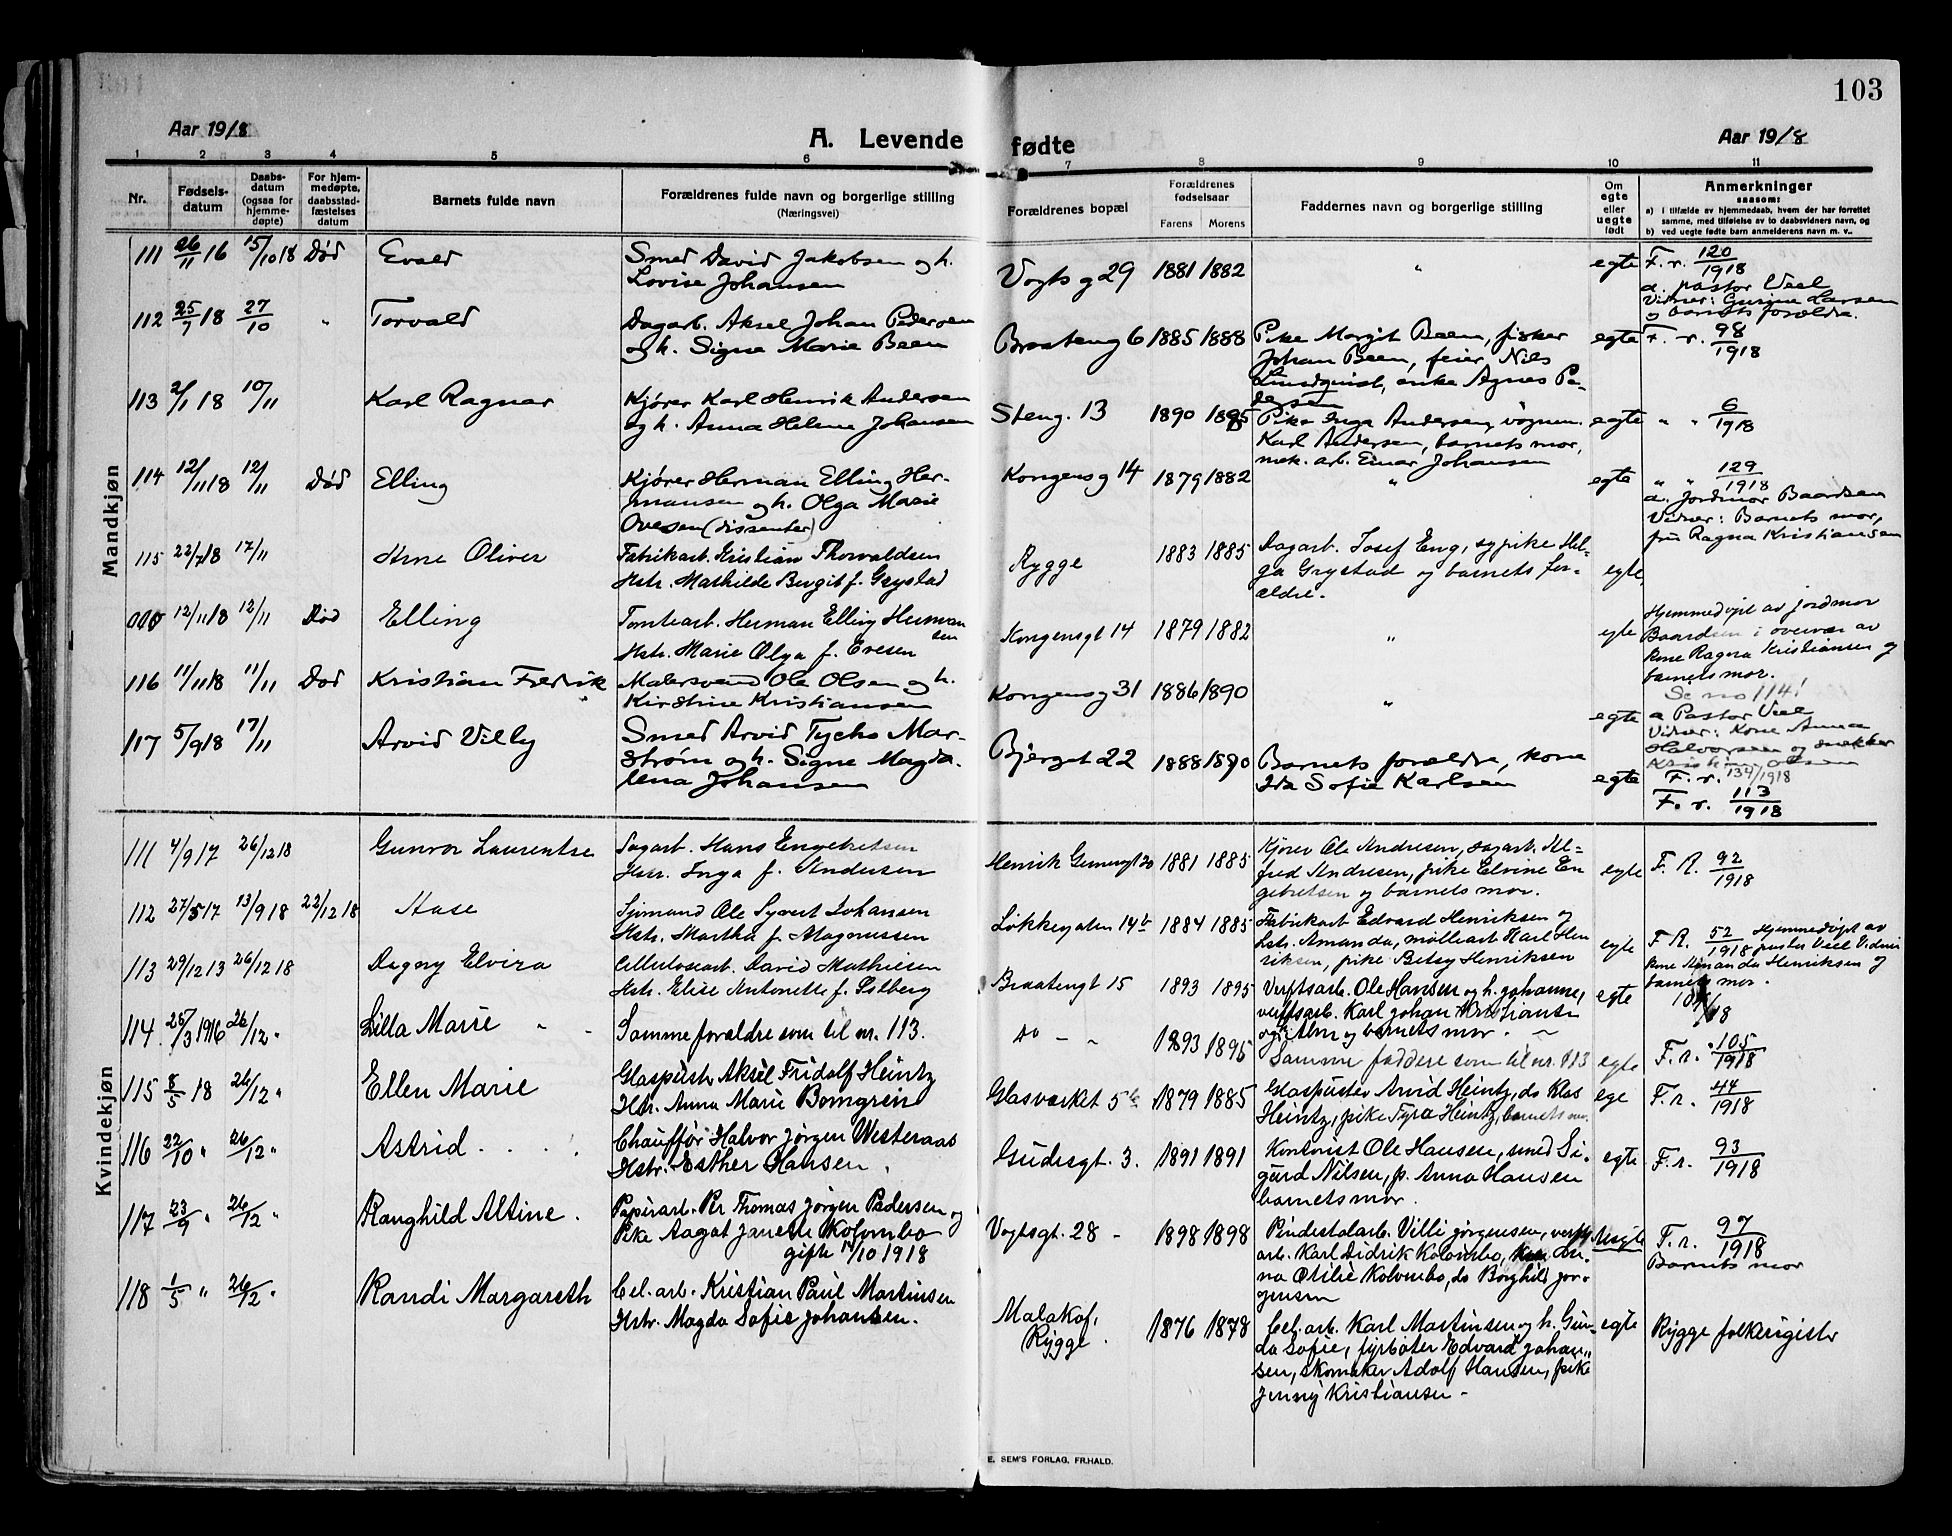 103
Aar 1918
A. Levende fødte
Aar 1918
1 2 3 4 5 6 7 8 9 10 11
Nr.
Fødsels-
datum
Daabs-
datum
(ogsaa for
hjemme-
døpte)
For hjem-
medøpte,
daabsstad-
fæstelses
datum
Barnets fulde navn
Forældrenes fulde navn og borgerlige stilling
(Næringsvei)
Forældrenes bopæl
Forældrenes
fødselsaar
Farens Morens
Faddernes navn og borgerlige stilling
Om
egte
eller
uegte
født
Anmerkninger
saasom:
a) i tilfælde av hjemmedaab, hvem der har forrettet
samme, med tilføielse av to daabsvidners navn, og
b) ved uegte fødte barn anmelderens navn m. v..
Mandkjøn
111 26/11 16 15/10 18 Død Evald
Smed David Jakobsen og h.
Lovise Johansen
Vogts g 29 1881 1882 " egte F. r. 120/1918
a. pastor Veel
Vidner: Gurine Larsen
og barnets forældre.
112 25/7 18 27/10 " Torvald
Dagarb. Aksel Johan Pedersen
og h. Signe Marie Been
Braateng 6 1885 1888
Pike Margit Been, fisker
Johan Been, feier Nils
Lindquist, enke Agnes Pe-
dersen
egte F. r. 98/1918
113 2/1 18 10/11 Karl Ragnar
Kjører Karl Henrik Andersen
og h. Anna Helene Johansen
Steng. 13 1890 1895
Pike Inga Andersen, vognm.
Karl Andersen, barnets mor,
mek. arb. Einar Johansen
egte " " 6/1918
114 12/11 18 12/11 Død Elling
Kjører Herman Elling Her-
mansen og h. Olga Marie
Ovesen (dissenter)
Kongens g 14 1879 1882 " egte " " 129/1918
a. Jordmor Baardsen
Vidner: Barnets mor,
fru Ragna Kristiansen
115 22/7 18 17/11 Arne Oliver
Fabrikarb. Kristian Thorvaldsen
Hstr. Mathilde Bergit f. Grystad
Rygge 1883 1885
Dagarb. Josef Eng, sypike Hel-
ga Grystad og barnets for-
ældre.
egte
000 12/11 18 12/11 Død Elling
Tomtearb. Herman Elling Herman
sen
Hstr. Marie Olga f. Evesen
Kongensgt 14 1879 1882 " egte
Hjemmedøpt av jordmor
Baardsen i overvær av
kone Ragna Kristiansen og
barnets mor.
Se no 114!
116 11/11 18 11/11 Død Kristian Fredrik
Malersvend Ole Olsen og h.
Kirstine Kristiansen
Kongens g 31 1886 1890 " egte
a Pastor Veel
Vidner: Kone Anna
Halvorsen og snekker
Kristian Olsen
F. r. 134/1918
117 5/9 18 17/11 Arvid Villy
Smed Arvid Tycho Mar-
strøm og h. Signe Magda-
lena Johansen
Bjerget 22 1888 1890
Barnets forældre, kone
Ida Sofie Karlsen
egte F. r. 113/1918
Kvindekjøn
111 4/9 17 26/12 18 Gunvor Laurentse
Sagarb. Hans Engebretsen
Hstr. Inga f. Andersen
Henrik Gernersgt 20 1881 1885
Kjører Ole Andresen, sagarb. Al-
fred Andresen, pike Elvine En
gebretsen og barnets mor.
egte F. R. 92/1918
112 27/5 17 13/9 18 22/12 18 Aase
Sjømand Ole Syvert Johansen
Hstr. Martha f. Magnussen
Løkkegaten 14b 1884 1885
Fabrikarb Edvard Henriksen og
hstr. Amanda, møllearb Karl Hen
riksen, pike Betsy Henriksen
egte F R. 52/1918 Hjemmedøpt av
pastor Veel Vidner
kone Amanda Henriksen og
barnets mor.
113 29/12 13 26/12 18 Dagny Elvira
Cellulosearb. David Mathiesen
Hstr. Elise Antonette f. Solberg
Braatengt 15 1893 1895
Verftsarb. Ole Hansen og h. Johanne,
verftsarb. Karl Johan Kristianse
og Alm og barnets mor.
egte
114 25/3 1916 26/12 " Lilla Marie
Samme forældre som til nr. 113.
do - " 1893 1895
Samme faddere som til nr. 113
egte F. r. 105/1918
115 8/5 18 26/12 " Ellen Marie
Glaspuster Aksel Fridolf Heintz
Hstr. Anna Marie Bomgren
Glasværket 5 1879 1885
Glaspuster Arvid Heintz, do Klas
Heintz, pike Tyra Heintz, barnets mor.
ege F. r. 44/1918
116 22/10 " 26/12 " Astrid
Chauffør Halvor Jørgen Westeraas
Hstr. Esther Hansen
Gudesgt. 3. 1891 1891
Kontorist Ole Hansen, smed Si-
gurd Nilsen, p. Anna Hansen
barnets mor.
egte F. r. 93/1918
117 23/9 " 26/12 " Ranghild Altine
Papirarb. Per Thomas Jørgen Pedersen og
Pike Aagot Janette Kolombo
gifte 14/10 1918
Vogtsgt. 28 - 1898 1898
Pindestolarb. Villi Jørgensen, verfts
arb. Karl Didrik Kolombo,
na Otilie Kolombo, do Borghild Jør-
gensen
Uegte F. r. 97/1918
Barnets mor
118 1/5 " 26/12 " Randi Margareth
Cel. arb. Kristian Paul Martinsen
Hstr. Magda Sofie Johansen.
Malakof,
Rygge
1876 1878
Cel. arb. Karl Martinsen og h. Gun-
da Sofie, fyrbøter Edvard Johan-
sen, skomaker Adolf Hansen, pike
Jenny Kristiansen -
egte Rygge folkerigister
E. SEM'S FORLAG, FR.HALD.